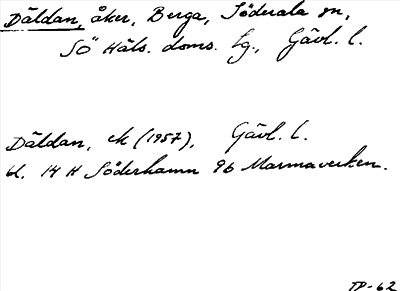 Däldan, åker, Berga, Söderala sn,
SÖ Häls. doms. lg., Gävl. l.
Däldan, ek (1957), Gävl. l.
bl. 14 H Söderhamn 9b Marmaverken.
TP-62